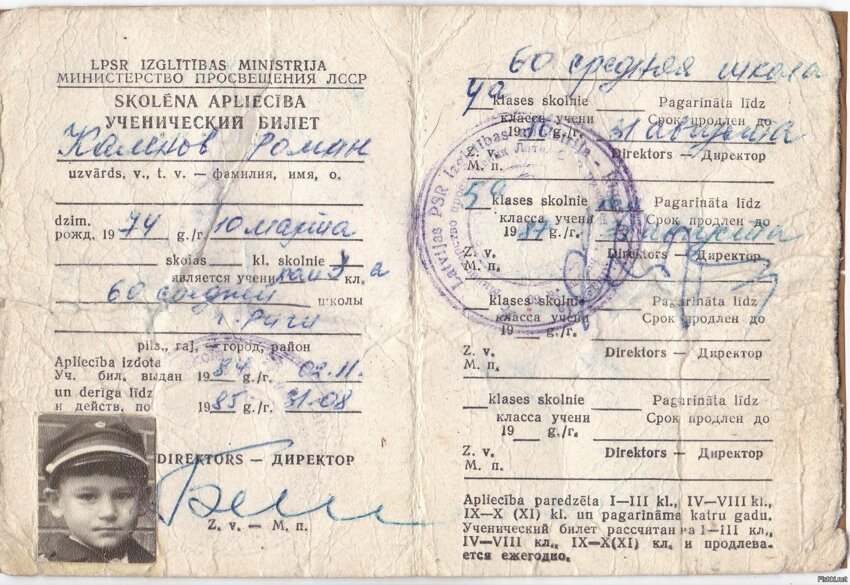 LPSR IZGLĪTĪBAS MINISTRIJA
МИНИСТЕРСТВО ПРОСВЕЩЕНИЯ ЛССР
SKOLĒNA APLIECĪBA
УЧЕНИЧЕСКИЙ БИЛЕТ
Каленов Роман
uzvārds, v., t. v. — фамилия, имя, о.
dzim.
рожд. 1974 g./г. 10 марта
skolas kl. skolnie
является учени кл. а
60 средней школы
г. Риги
pils., raj. — город, район
Apliecība izdota
Уч. бил. выдан 1984 g./г. 02.11.
un derīga līdz
и действ. по 1985 g./г. 31.08
DIREKTORS — ДИРЕКТОР
Z. v. — М. п.
60 средняя школа
4а klases skolnie Pagarināta līdz
класса учени Срок продлен до
1986 g./г. 31 августа
Z. v. Directors — Директор
М. п.
5а klases skolnie Pagarināta līdz
класса учени Срок продлен до
1987 g./г. августа
Z. v. Direktors — Директор
М. п.
klases skolnie Pagarināta līdz
класса учени Срок продлен до
19 g./г.
Z. v. Direktors — Директор
М. п.
klases skolnie Pagarināta līdz
класса учени Срок продлен до
19 g./г.
Z. v. Direktors — Директор
М. п.
Apliecība paredzēta I—III kl., IV—VIII kl.,
IX—X (XI) kl. un pagarināma katru gadu.
Ученический билет рассчитан на I—III кл.,
IV—VIII кл., IX—X(XI) кл. и продлева-
ется ежегодно.
Latvijas PSR Izglītības ministrija
Fishki.net